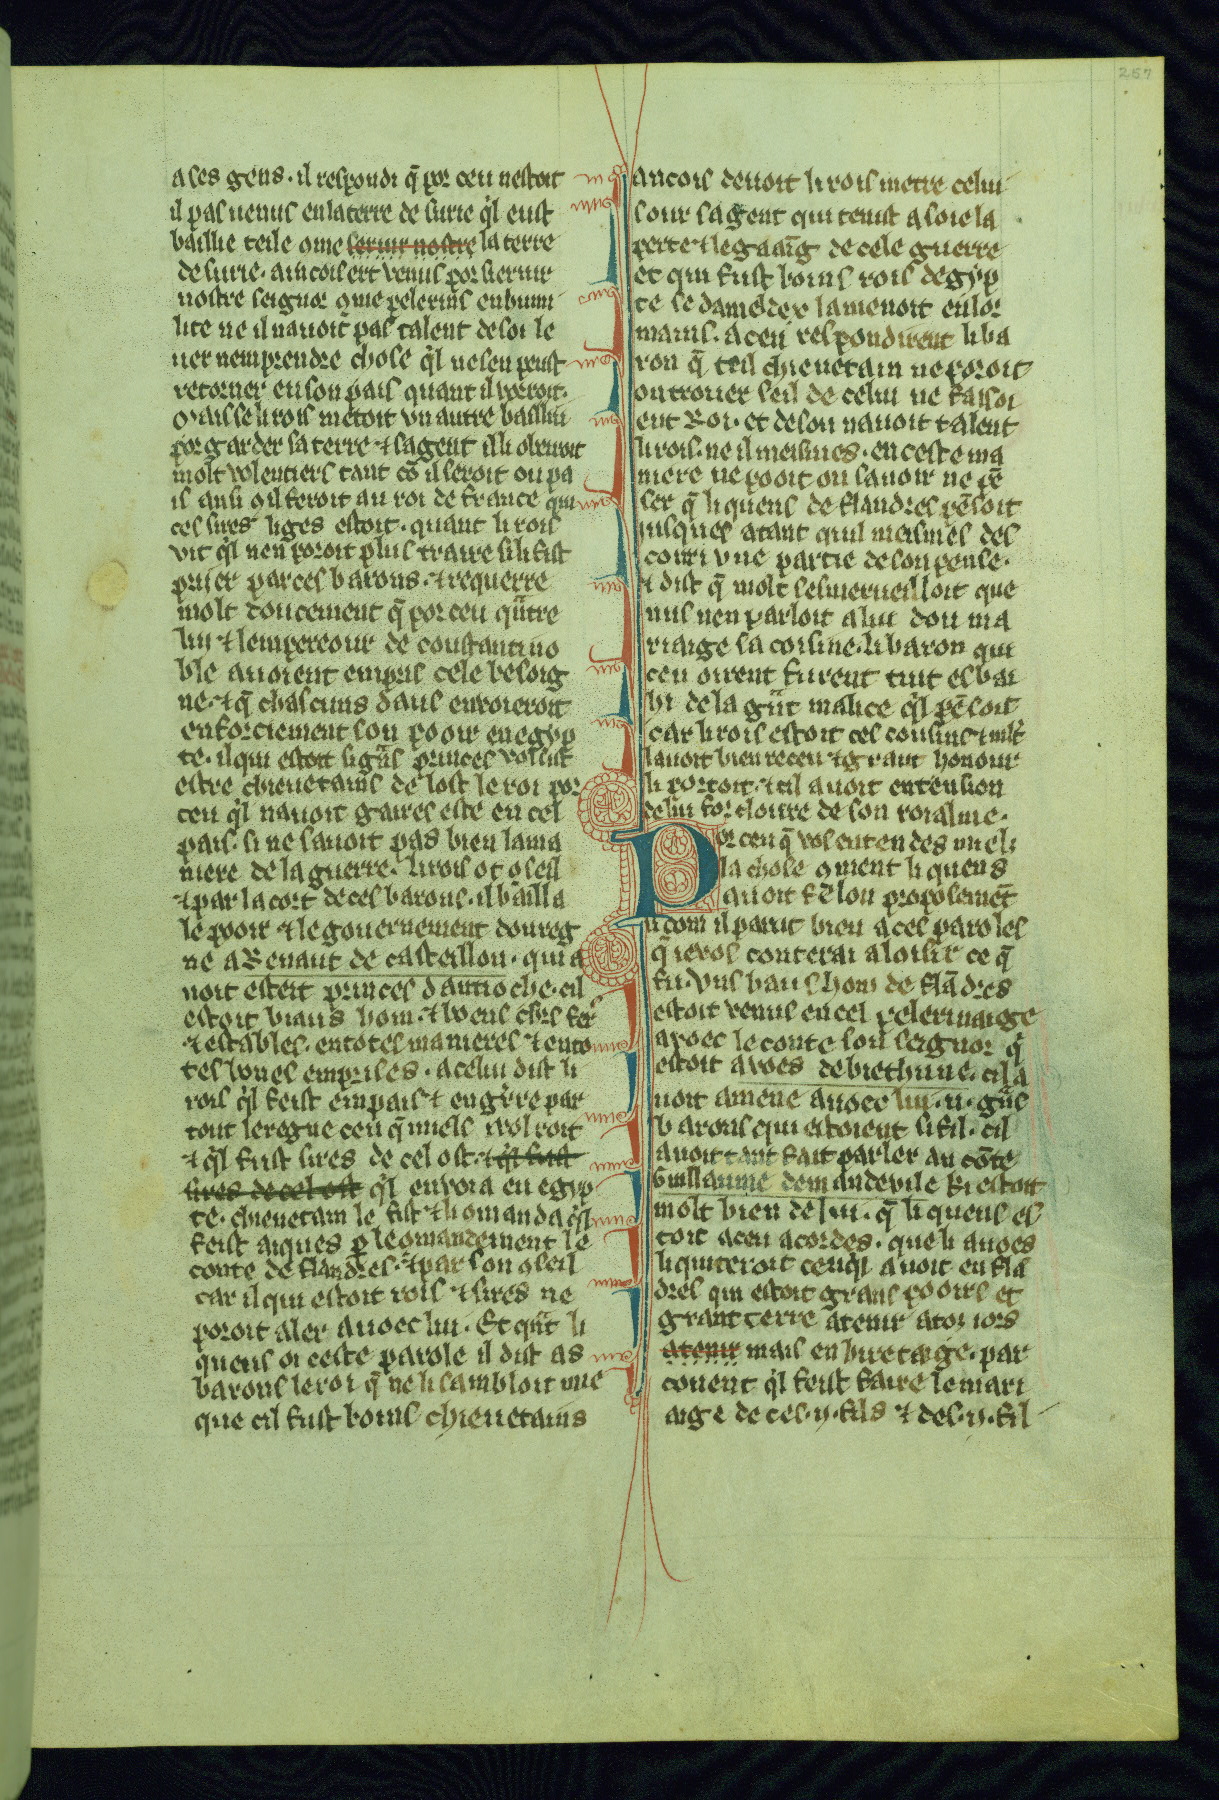 257
a ses gens · il respondi q̄ por ceu nestoit
il pas uenus en la terre de surie ql eust
baillie teile ome seruir nostre la terre
de surie · aincois ert venus por seruir
nostre seignor ome pelerins en humi
lite ne il nauoit pas talent de soi le
uer nemprendre chose ql ne sen peust
retorner en son pais quant il vorroit ·
Mais se li rois metoit vn autre bailliu
por garder sa terre ⁊ sa gent il li obeiroit
molt volentiers tant cō il seroit ou pa
is ausi il feroit au roi de france qui
ces sires liges estoit · quant li rois
vit ql nen poroit plus traire si li fist
prijer par ces barons · ⁊ requerre
molt doucement q̄ por ceu q̄ntre
lui ⁊ lempereour de constantino
ble auoient empris cele besoig
ne · ⁊ q̄ chascuns daus enuoieroit
enforciement son pooir en egyp
te · il qui estoit si gns princes vossist
estre chieuetains de lost le roi por
ceu ql nauoit gaires este en cel
pais · si ne sauoit pas bien la ma
niere de la guerre · li rois ot oseil
⁊ par lacort de ces barons · il bailla
le pooir ⁊ le gouernement dou reg
ne a Renaut de casteillon · qui a
uoit esteit princes dantioche · cil
estoit viaus hom · ⁊ boens chrs fer
⁊ estables · en totes manieres ⁊ en to
tes bones emprises · a celui dist li
rois ql feist em pais ⁊ en gerre par
tout le regne ceu q̄ miels wolroit
⁊ ql fust sires de cel ost · ⁊ ql fust
sires de cel ost ql enuoia en egyp
te · chieuetain le fist ⁊ li omanda ql
feist aiques p le omandement le
conte de flandres · ⁊ par son oseil
car il qui estoit rois ⁊ sires ne
poroit aler auoec lui · Et qnt li
quens oi ceste parole il dist as
barons le roi q̄ ne li sambloit mie
que cil fust boins chieuetains
ancois deuoit li rois metre celui
sour sa gent qui tenist a soie la
perte ⁊ le gaaīg de cele guerre
et qui fust boins rois degyp
te se damedex la menoit en lor
mains · a ceu respondirent li ba
ron q̄ teil chieuetain ne poroit
on trouer seil de celui ne faisoi
ent Roi · et de son nauoit talent
li rois · ne il meismes · en ceste ma
niere ne pooit on sauoir ne pē
ser q̄ li quens de flandres pēsoit
iusques atant quil meismes des
couri vne partie de son pense ·
⁊ dist q̄ molt sesmerueilloit que
nus nen parloit a lui dou ma
riaige sa coisine · li baron qui
ceu oirent furent tuit esbai
hi de la gnt malice ql pēsoit
car li rois estoit ces cousins ⁊ mlt
lauoit bien receu ⁊ grant honour
li portoit · ⁊ cil auoit entension
de lui for cloure de son roialme ·
Por ceu q̄ vos entendes miels
la chose oment li quens
auoit felon proposemēt
si com il parut bien a ces paroles
q̄ ie vos conterai a loisir ce q̄
fu · Vns haus hom de flādres
estoit venus en cel pelerinaige
avoec le conte son seignor q̄
estoit avoes de biethune · cil a
uoit amene auoec lui · ii · gns
barons qui estoient si fil · cil
auoit tant fait parler au cōte
Guillaume de mandevile ki estoit
molt bien de lui · q̄ li quens es
toit a ceu acordes · que li auoes
li quiteroit ceu ql auoit en flā
dres qui estoit grans pooirs et
grant terre a tenir a toz iors
atenir mais en hiretaige · par
couent ql feist faire le mari
aige de ces · ij · fils ⁊ des · ij · fil